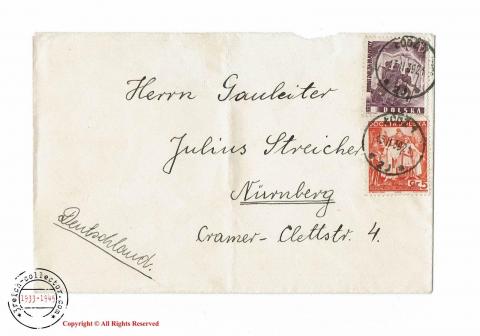 Herrn Gauleiter
Julius Streicher
Nürnberg
Cramer-Clettstr. 4.
Deutschland.
POLSKA
POCZTA POLSKA
GR 5
ŁÓDŹ 1
reich-collector.com
1933-1945
Copyright © All Rights Reserved